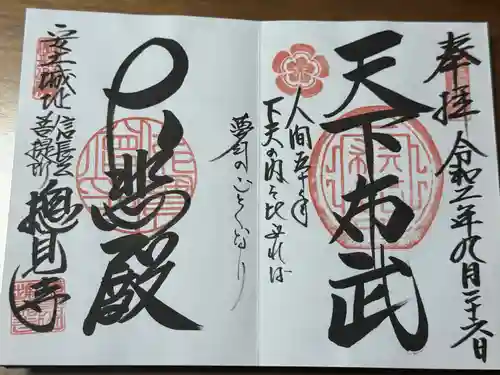 奉拝
令和二年九月二十六日
天下布武
人間五十年
下天の内を比ぶれば
夢幻の如くなり
大悲殿
安土城址
信長公
菩提所
摠見寺